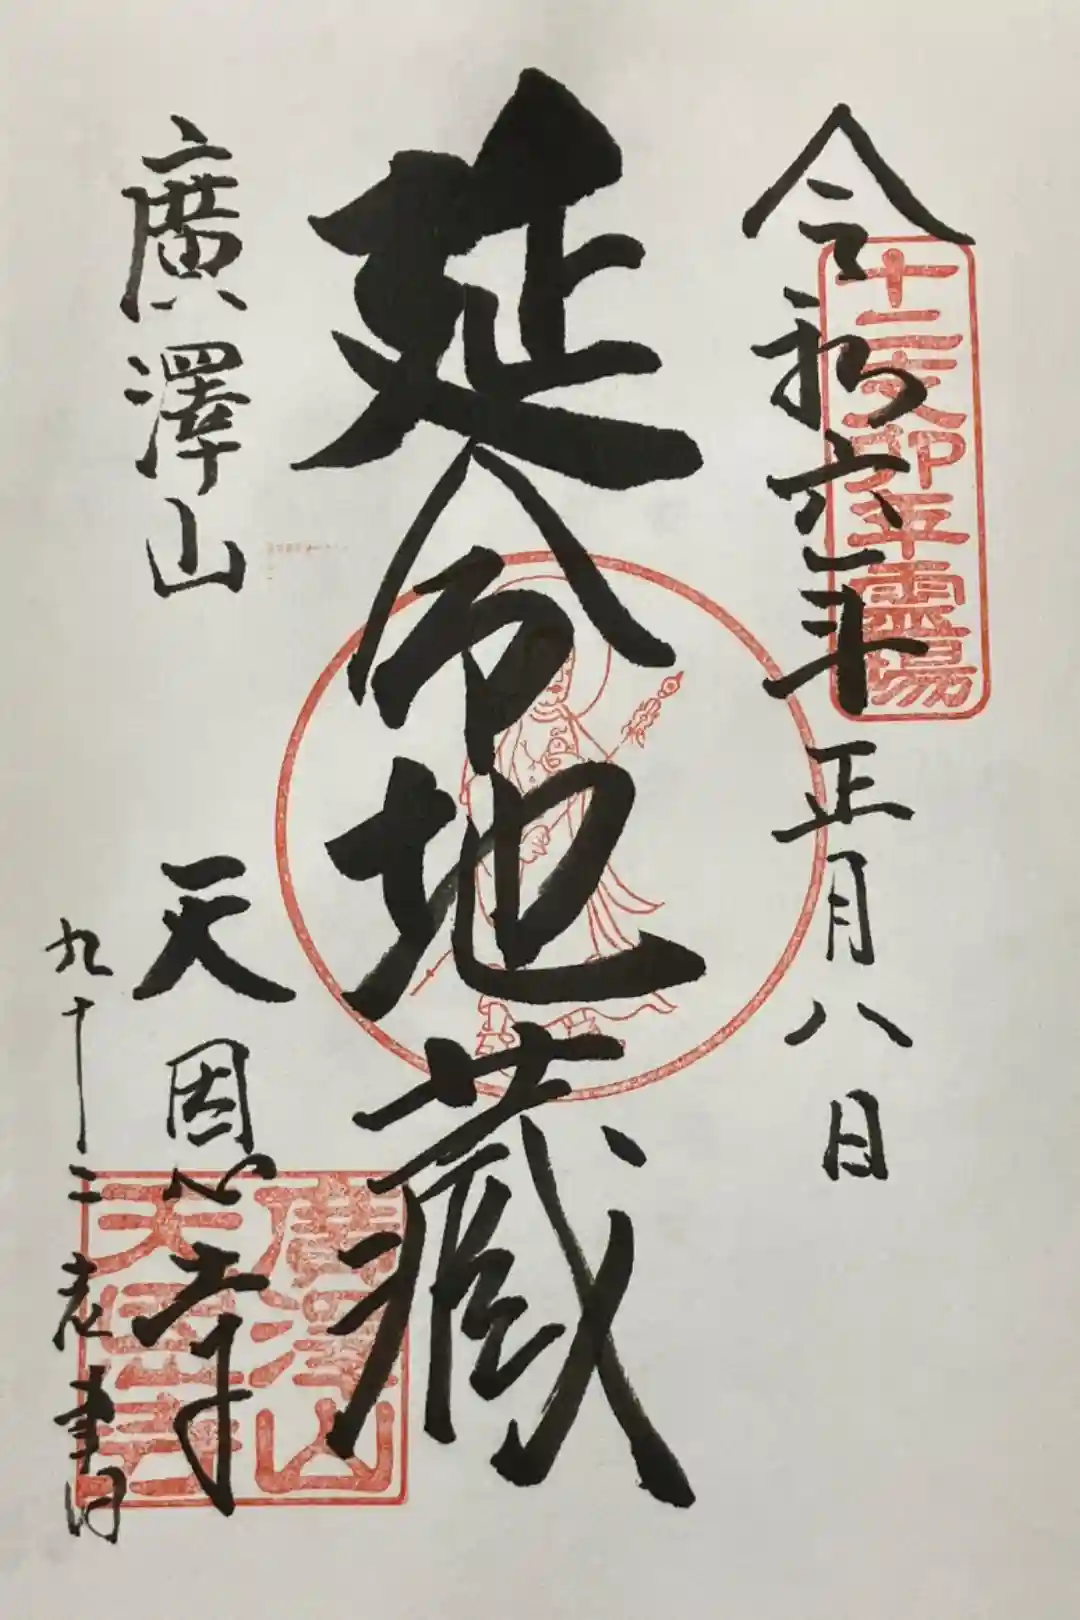 令和六年正月八日
十二支卯年霊場
延命地蔵
廣澤山
天恩寺
廣澤山
天恩寺
九十二老